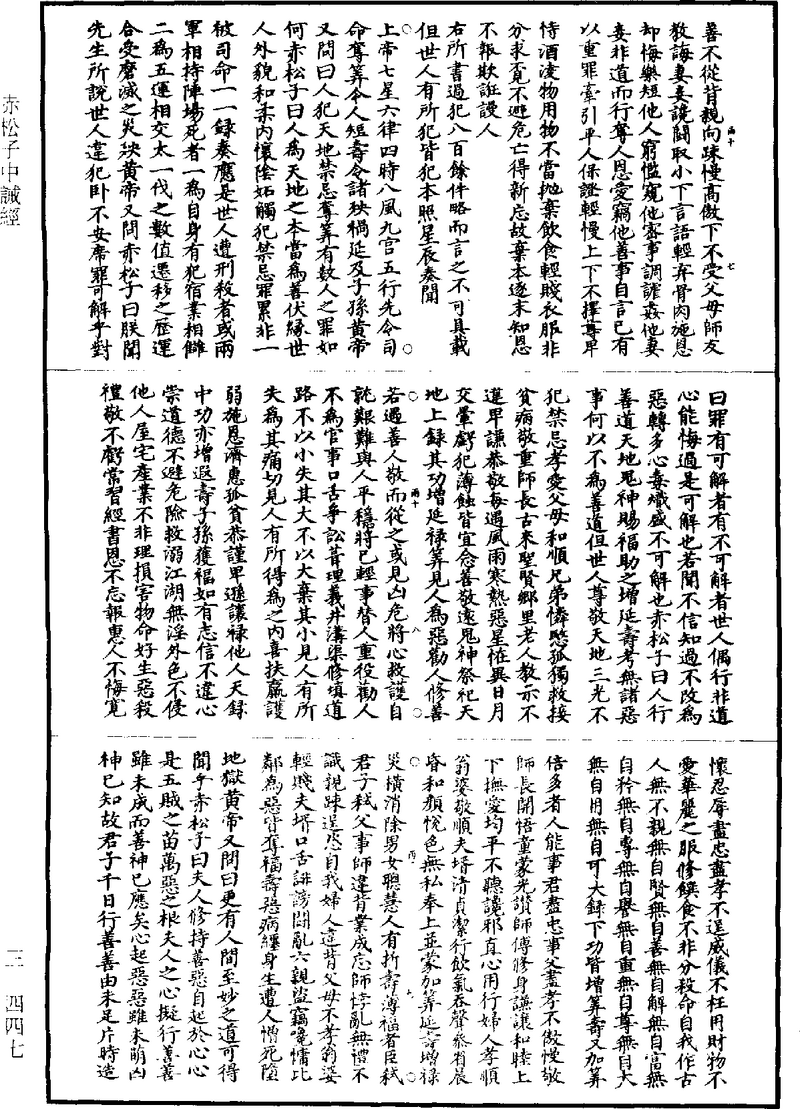 善不從背親向踈慢高傲下不受父母師友
教誨妻妾讒闘取小下言語輕弃骨肉施恩
却悔樂短他人窮慍窺他密事調誑姦他妻
妾非道而行奪人恩愛竊他善事自言已有
以重罪牽引平人保證輕慢上下不擇尊卑
恃酒凌物用物不當拋棄飲食輕賤衣服非
分求覓不避危亡得新忘故棄本逐末知恩
不報欺誑謾人
右所書過犯八百餘件略而言之不可具載
但世人有所犯皆犯本照星辰奏聞
上帝七星六律四時八風九宮五行先令司
命奪筭令人短壽令諸殃禍延及子孫黄帝
又問曰人犯天地禁忌奪筭有數人之罪如
何赤松子曰人為天地之本當為善伏緣世
人外貌和柔内懷陰妬觸犯禁忌罪累非一
被司命一一録奏應是世人遭刑殺者或兩
軍相持陣場死者一為自身有犯宿業相讎
二為五運相交太一伐之數值遷移之歷運
合受磨滅之災殃黄帝又問赤松子曰朕聞
先生所說世人違犯卧不安席罪可解乎對
曰罪有可解者有不可解者世人偶行非道
心能悔過是可解也若聞不信知過不改為
惡轉多心毒熾盛不可解也赤松子曰人行
善道天地鬼神賜福助之增延壽考無諸惡
事何以不為善道但世人尊敬天地三光不
犯禁忌孝愛父母和順兄弟憐愍孤獨救接
貧病敬重師長古來聖賢鄉里老人教示不
違卑謙恭敬每遇風雨寒熱惡星恠異日月
交暈虧犯薄蝕皆宜念善敬遠鬼神祭祀天
地上録其功增延禄筭見人為惡勸人修善
若遇善人敬而從之或見凶危將心救護自
就艱難與人平穩將已輕事替人重役勸人
不為官事口舌爭訟葺理義井溝渠修填道
路不以小失其大不以大棄其小見人有所
失為其痛切見人有所得為之内喜扶羸護
弱施恩濟惠孤貧恭謹卑遜讓禄他人天録
中功亦增遐壽子孫獲福如有志信不違心
崇道德不避危險救溺江湖無淫外色不侵
他人屋宅產業不非理損害物命好生惡殺
禮敬不虧常習經書恩不忘報惠人不悔寬
懷忍辱盡忠盡孝不逞威儀不枉用財物不
愛華麗之服修饌食不非分殺命自我作古
人無不親無自賢無自善無自解無自富無
自矜無自專無自譽無自重無自尊無自大
無自用無自可大録下功皆增筭壽又加筭
倍多者人能事君盡忠事父盡孝不傲慢敬
師長開悟童蒙光讃師傅修身謙讓和睦上
下撫愛均平不聽讒邪直心用行婦人孝順
翁婆敬順夫壻清貞潔行飲氣吞聲叅省晨
昏和顔悅色無私奉上並蒙加筭延壽增禄
災橫消除男女聰慧人有折壽薄福者臣弑
君子弑父事師違背業成忘師悖亂無禮不
識親踈逞恣自我婦人違背父母不孝翁婆
輕賤夫壻口舌誹謗闘亂六親盜竊奄慵比
鄰為惡皆奪福壽惡病纏身生遭人憎死墮
地獄黄帝又問曰更有人間至妙之道可得
聞乎赤松子曰夫人修持善惡自起於心心
是五賊之苗萬惡之根夫人之心擬行善善
雖未成而善神已應矣心起惡惡雖未萌凶
神已知故君子千日行善善由未足片時造
赤松子中誡經
三 四四七
兩十 七
兩十 八